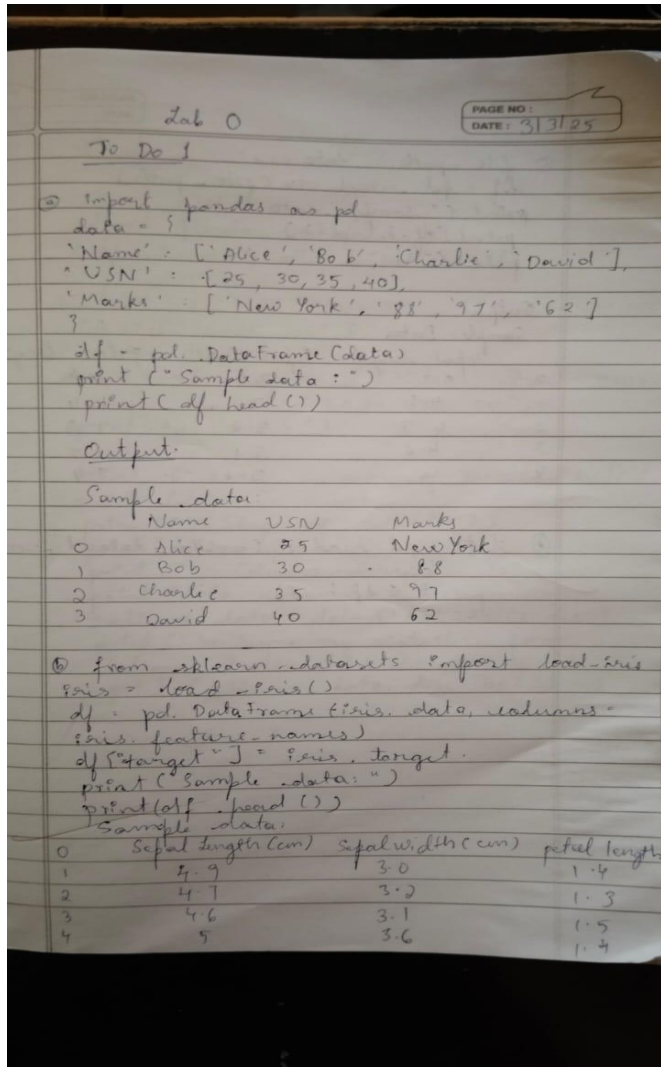 Lab 0
PAGE NO :
DATE : 3/3/25
To Do 1
(a) import pandas as pd
data = {
'Name' : ['Alice', 'Bob', 'Charlie', 'David'],
'USN' : [25, 30, 35, 40],
'Marks' : ['New York', '88', '97', '62']
}
df = pd. DataFrame (data)
print ("Sample data : ")
print ( df head ())
Output.
Sample data
Name USN Marks
0 Alice 25 New York
1 Bob 30 88
2 Charlie 35 97
3 David 40 62
(b) from sklearn.datasets import load_iris
iris = load_iris()
df = pd. DataFrame (iris. data, columns =
iris. feature_names)
df ["target"] = iris. target.
print ("Sample data: ")
print (df . head ())
Sample data:
0 Sepal length (cm) Sepal width (cm) petal length
1 4.9 3.0 1.4
2 4.7 3.2 1.3
3 4.6 3.1 1.5
4 5 3.6 1.4